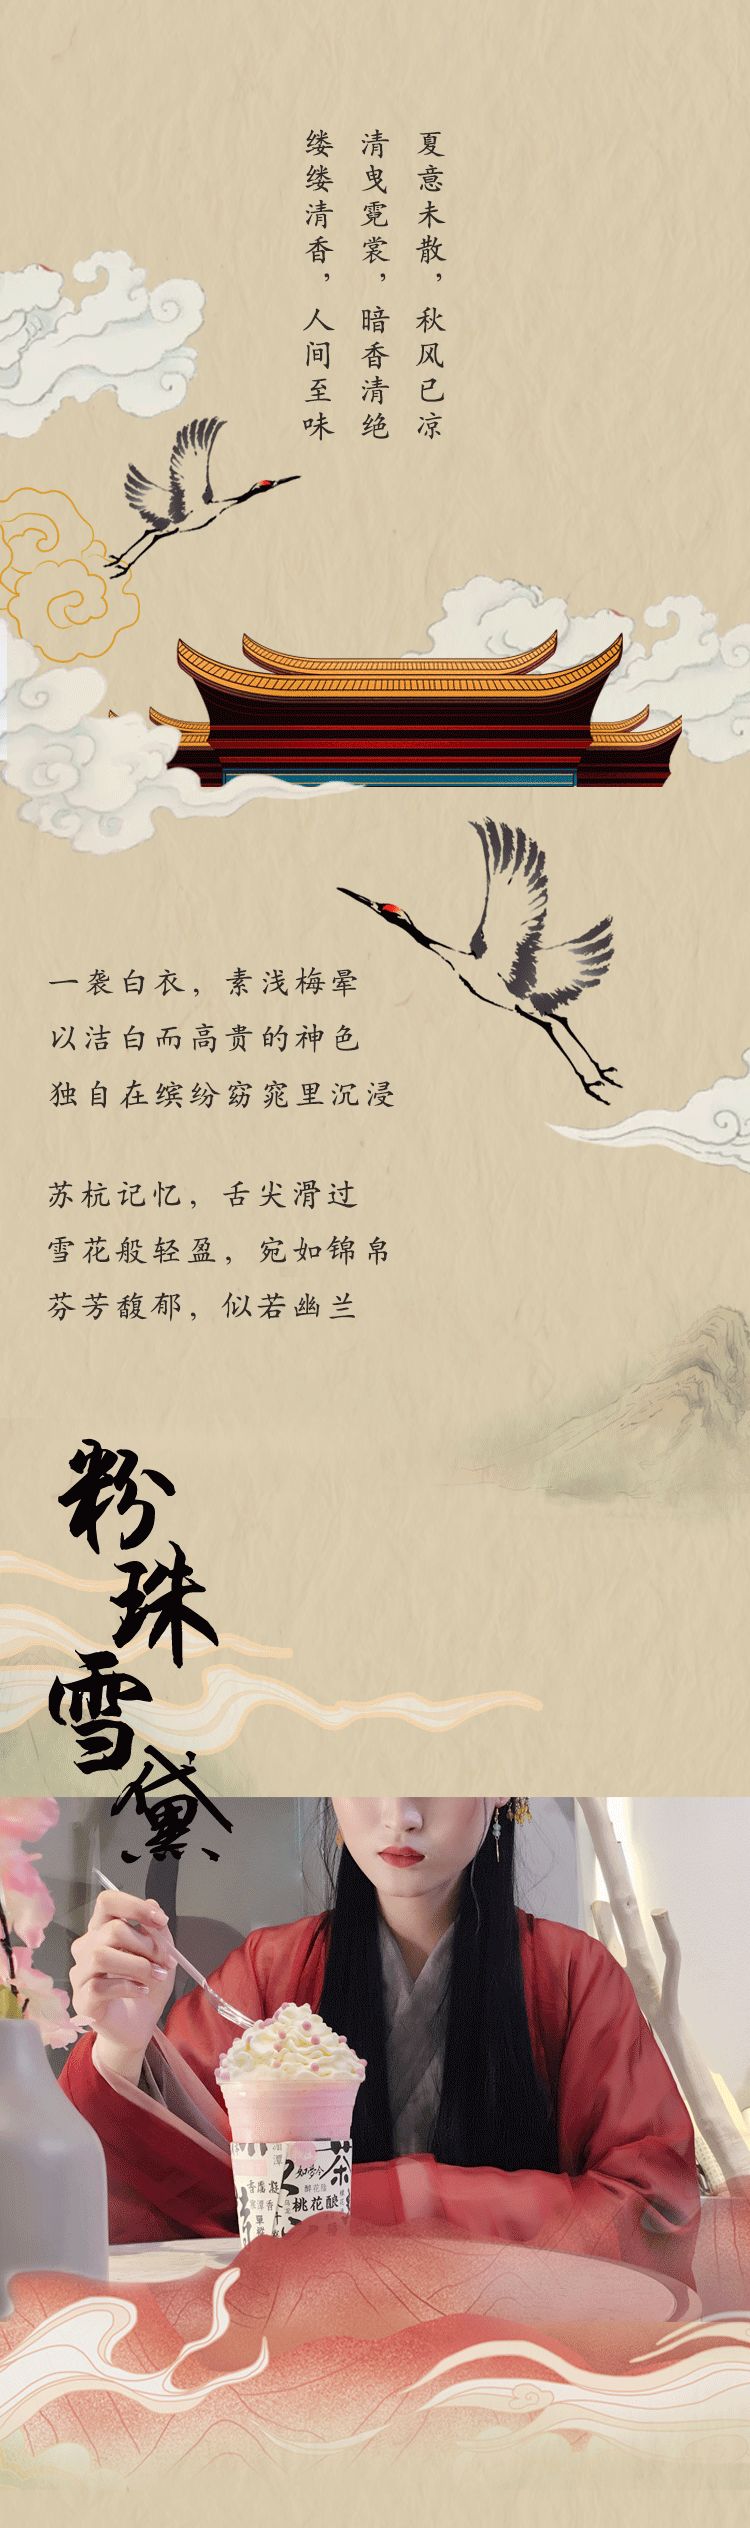 夏意未散，秋风已凉
清曳霓裳，暗香清绝
缕缕清香，人间至味
一袭白衣，素浅梅晕
以洁白而高贵的神色
独自在缤纷窈窕里沉浸
苏杭记忆，舌尖滑过
雪花般轻盈，宛如锦帛
芬芳馥郁，似若幽兰
粉珠雪黛
茶
桃花酿
醉花